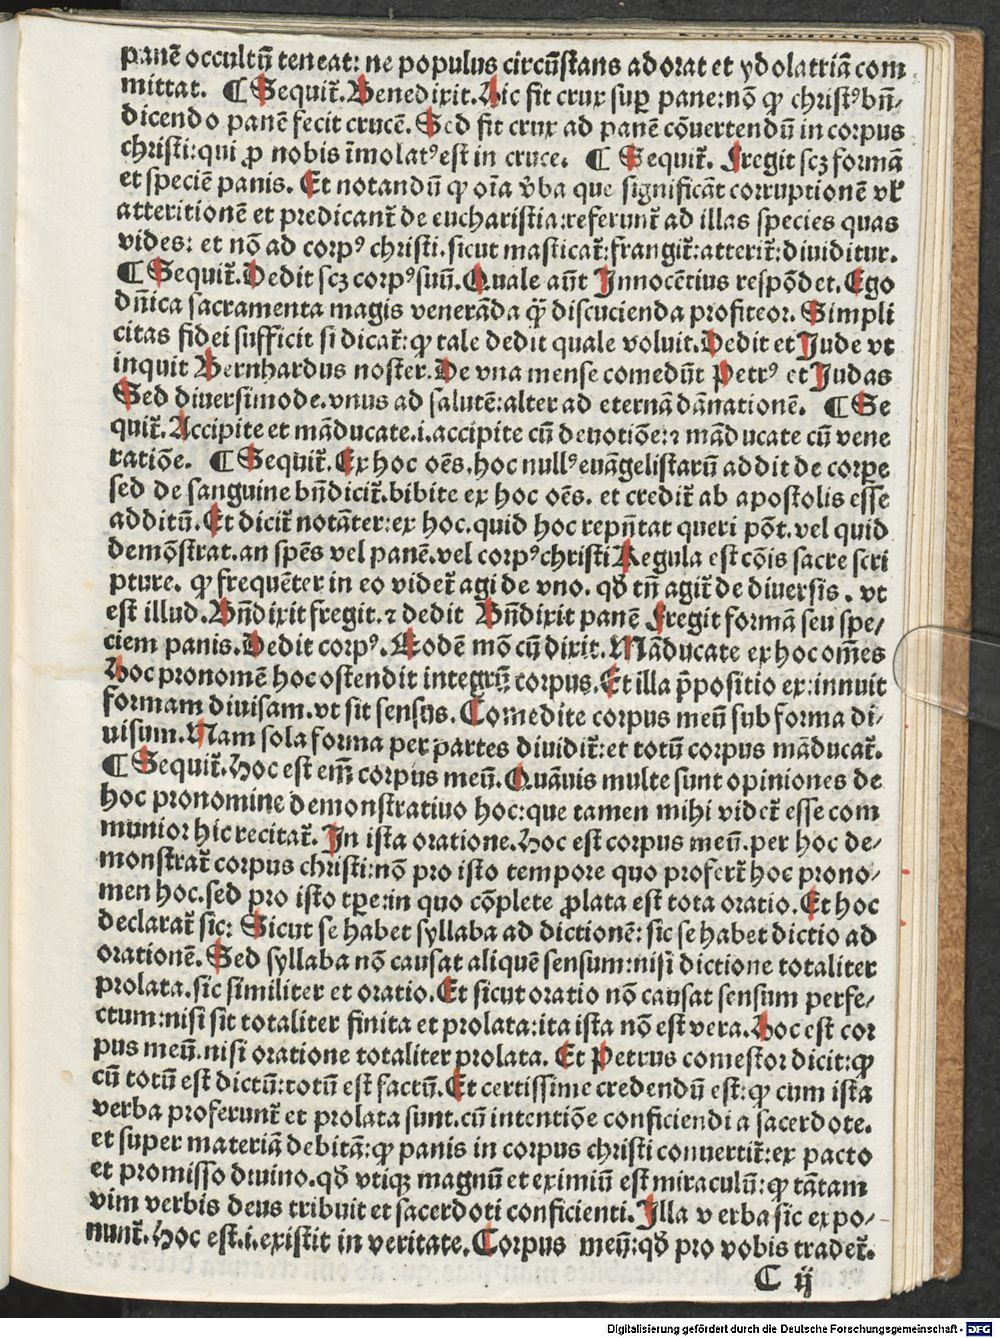 panē occultū teneat: ne populus circūstans adorat et ydolatriā com
mittat. ¶ Sequit᷑. Benedixit. Hic fit crux suꝑ pane: nō ꝙ christꝰ bn̄⸗
dicendo panē fecit crucē. Sed fit crux ad panē cōuertendū in corpus
christi: qui ꝓ nobis īmolatꝰ est in cruce. ¶ Sequit᷑. Fregit scꝫ formā
et speciē panis. Et notandū ꝙ oīa v̄ba que significāt corruptionē vl᷑
atteritionē et predicant᷑ de eucharistia: referunt᷑ ad illas species quas
vides: et nō ad corpꝰ christi. sicut masticat᷑: frangit᷑: atterit᷑: diuiditur.
¶ Sequit᷑. Dedit scꝫ corpꝰ suū. Quale aūt Innocētius respōdet. Ego
dn̄ica sacramenta magis venerāda q̄ꝫ discucienda profiteor. Simpli
citas fidei sufficit si dicat᷑: ꝙ tale dedit quale voluit. Dedit et Jude vt
inquit Bernhardus noster. De vna mense comedūt Petrꝰ et Judas
Sed diuersimode. vnus ad salutē: alter ad eternā dānationē. ¶ Se
quit᷑. Accipite et māducate. i. accipite cū deuotiōe: ⁊ māducate cū vene
ratiōe. ¶ Sequit᷑. Ex hoc oēs. hoc nullꝰ euāgelistarū addit de corpe
sed de sanguine bn̄dicit᷑. bibite ex hoc oēs. et credit᷑ ab apostolis esse
additū. Et dicit᷑ notāter: ex hoc. quid hoc repn̄tat queri pōt. vel quid
demōstrat. an spēs vel panē. vel corpꝰ christi Regula est cōis sacre scri
pture. ꝙ frequēter in eo videt᷑ agi de vno. qđ tn̄ agit᷑ de diuersis. vt
est illud. Bn̄dixit fregit. ⁊ dedit Bn̄dixit panē Fregit formā seu spe⸗
ciem panis. Dedit corpꝰ. Eodē mō cū dixit. Māducate ex hoc om̄es
Hoc pronomē hoc ostendit integrū corpus. Et illa p̄positio ex: innuit
formam diuisam. vt sit sensus. Comedite corpus meū sub forma di⸗
uisum. Nam sola forma per partes diuidit᷑: et totū corpus māducat᷑.
¶ Sequit᷑. Hoc est em̄ corpus meū. Quāuis multe sunt opiniones de
hoc pronomine demonstratiuo hoc: que tamen mihi videt᷑ esse com
munior hic recitat᷑. In ista oratione. Hoc est corpus meū. per hoc de⸗
monstrat᷑ corpus christi: nō pro isto tempore quo profert᷑ hoc prono⸗
men hoc. sed pro isto tꝑe: in quo cōplete ꝓlata est tota oratio. Et hoc
declarat᷑ sic: Sicut se habet syllaba ad dictionē: sic se habet dictio ad
orationē. Sed syllaba nō causat aliquē sensum: nisi dictione totaliter
prolata. sic similiter et oratio. Et sicut oratio nō causat sensum perfe⸗
ctum: nisi sit totaliter finita et prolata: ita ista nō est vera. Hoc est cor
pus meū. nisi oratione totaliter prolata. Et Petrus comestor dicit: ꝙ
cū totū est dictū: totū est factū. Et certissime credendū est: ꝙ cum ista
verba proferunt᷑ et prolata sunt. cū intentiōe conficiendi a sacerdote.
et super materiā debitā: ꝙ panis in corpus christi conuertit᷑: ex pacto
et promisso diuino. qđ vtiqꝫ magnū et eximiū est miraculū: ꝙ tātam
vim verbis deus tribuit et sacerdoti conficienti. Illa verba sic expo⸗
nunt᷑. Hoc est. i. existit in veritate. Corpus meū: qđ pro vobis tradet᷑.
C ij
Digitalisierung gefördert durch die Deutsche Forschungsgemeinschaft - DFG